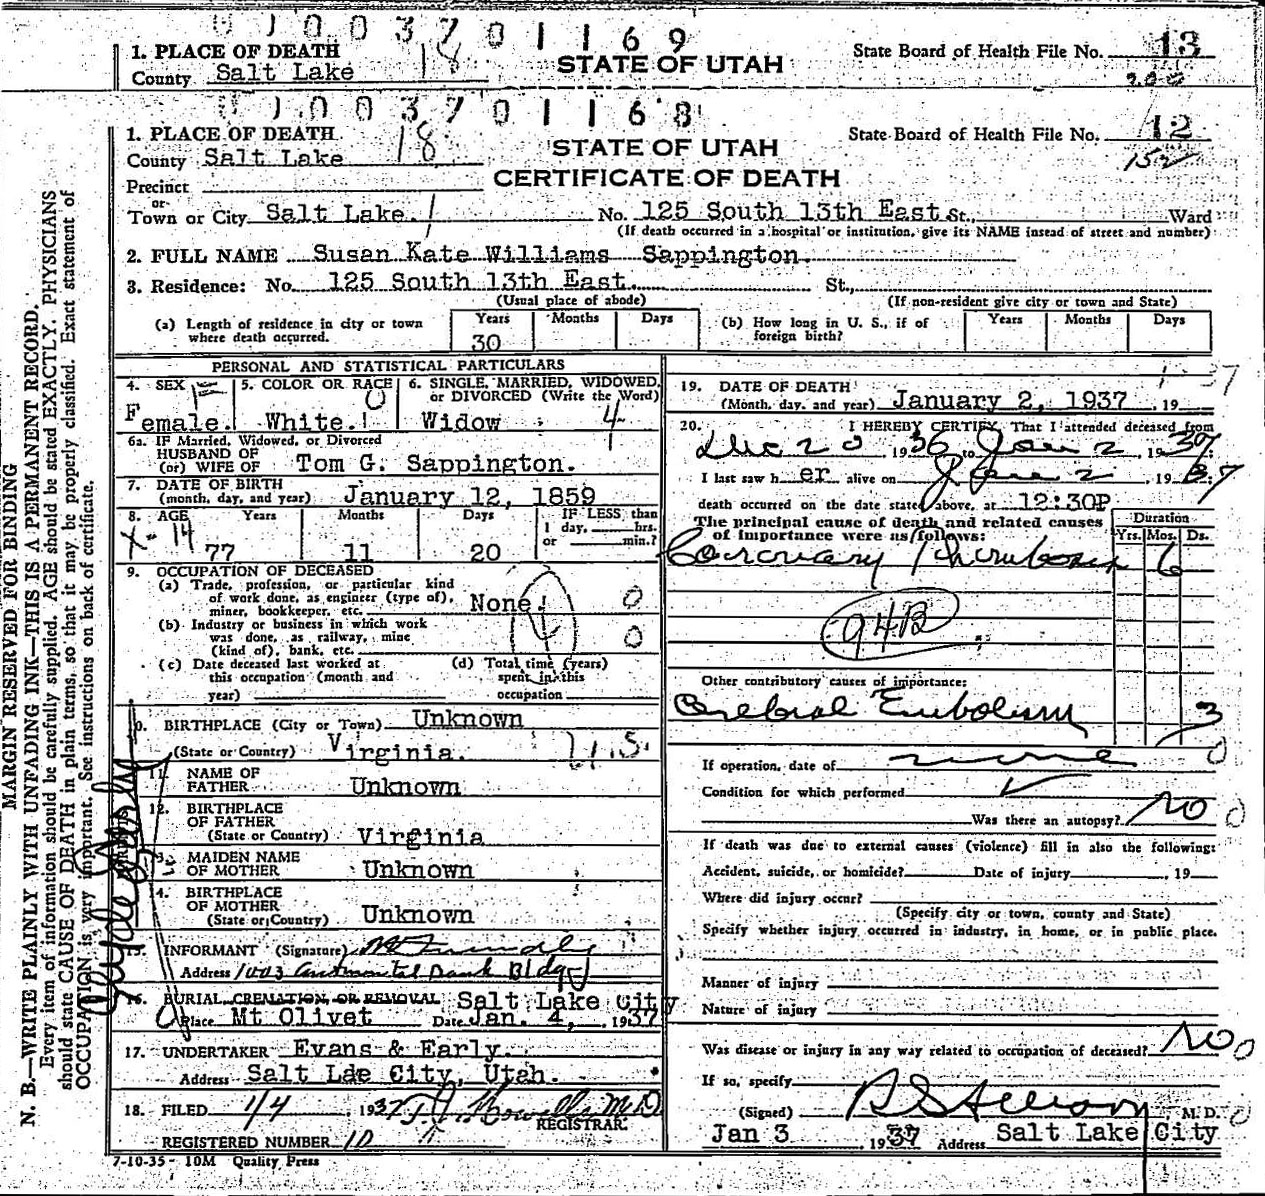 0 0 0 3 7 0 1 1 6 9
1. PLACE OF DEATH 18 STATE OF UTAH State Board of Health File No. 13
County Salt Lake 200
0 0 0 3 7 0 1 1 6 8
1. PLACE OF DEATH 18 STATE OF UTAH State Board of Health File No. 12
County Salt Lake 152
CERTIFICATE OF DEATH
Precinct
or
Town or City Salt Lake. 1 No. 125 South 13th East St., Ward
(If death occurred in a hospital or institution, give its NAME insead of street and number)
2. FULL NAME Susan Kate Williams Sappington.
3. Residence: No. 125 South 13th East. St.,
(Usual place of abode) (If non-resident give city or town and State)
(a) Length of residence in city or town where death occurred. Years 30 Months Days (b) How long in U. S., if of foreign birth? Years Months Days
PERSONAL AND STATISTICAL PARTICULARS
4. SEX F 5. COLOR OR RACE 0 6. SINGLE, MARRIED, WIDOWED, or DIVORCED (Write the Word)
Female. White. Widow 4
6a. IF Married, Widowed, or Divorced
HUSBAND OF
(or) WIFE OF Tom G. Sappington.
7. DATE OF BIRTH
(month, day, and year) January 12, 1859
8. AGE Years Months Days IF LESS than
1 day, hrs.
or min.?
X-14 77 11 20
9. OCCUPATION OF DECEASED
(a) Trade, profession, or particular kind
of work done, as engineer (type of),
miner, bookkeeper, etc. None. 0
(b) Industry or business in which work
was done, as railway, mine
(kind of), bank, etc. 0
(c) Date deceased last worked at
this occupation (month and
year)
(d) Total time (years)
spent in this
occupation
0. BIRTHPLACE (City or Town) Unknown
(State or Country) Virginia. U.S.
11. NAME OF
FATHER Unknown
12. BIRTHPLACE
OF FATHER
(State or Country) Virginia
3. MAIDEN NAME
OF MOTHER Unknown
4. BIRTHPLACE
OF MOTHER
(State or Country) Unknown
15. INFORMANT (Signature)
Address 1003 Continental Bank Bldg
16. BURIAL, CREMATION, OR REMOVAL Salt Lake City
Place Mt Olivet Date Jan. 4, 1937
17. UNDERTAKER Evans & Early.
Address Salt Lae City, Utah.
18. FILED 1/4, 1937 Howells M.D
REGISTRAR.
REGISTERED NUMBER 10
7-10-35- 10M Quality Press
19. DATE OF DEATH 1-37
(Month, day, and year) January 2, 1937, 19
20. I HEREBY CERTIFY, That I attended deceased from
Dec 20, 1936 to Jan 2, 1937
I last saw her alive on Jan 2, 1937;
death occurred on the date stated above, at 12:30P
The principal cause of death and related causes
of importance were as follows: Duration
Yrs. Mos. Ds.
Coronary Thrombosis 6
94B
Other contributory causes of importance:
Cerebral Embolism 3
0
If operation, date of none
Condition for which performed
Was there an autopsy? No 0
If death was due to external causes (violence) fill in also the following:
Accident, suicide, or homicide? Date of injury, 19
Where did injury occur?
(Specify city or town, county and State)
Specify whether injury occurred in industry, in home, or in public place.
Manner of injury
Nature of injury
Was disease or injury in any way related to occupation of deceased? No 0
If so, specify
(Signed) M. D. 0
Jan 3 1937 Address Salt Lake City
MARGIN RESERVED FOR BINDING
N. B.—WRITE PLAINLY WITH UNFADING INK—THIS IS A PERMANENT RECORD.
Every item of information should be carefully supplied. AGE should be stated EXACTLY. PHYSICIANS
should state CAUSE OF DEATH in plain terms, so that it may be properly classified. Exact statement of
OCCUPATION is very important. See instructions on back of certificate.